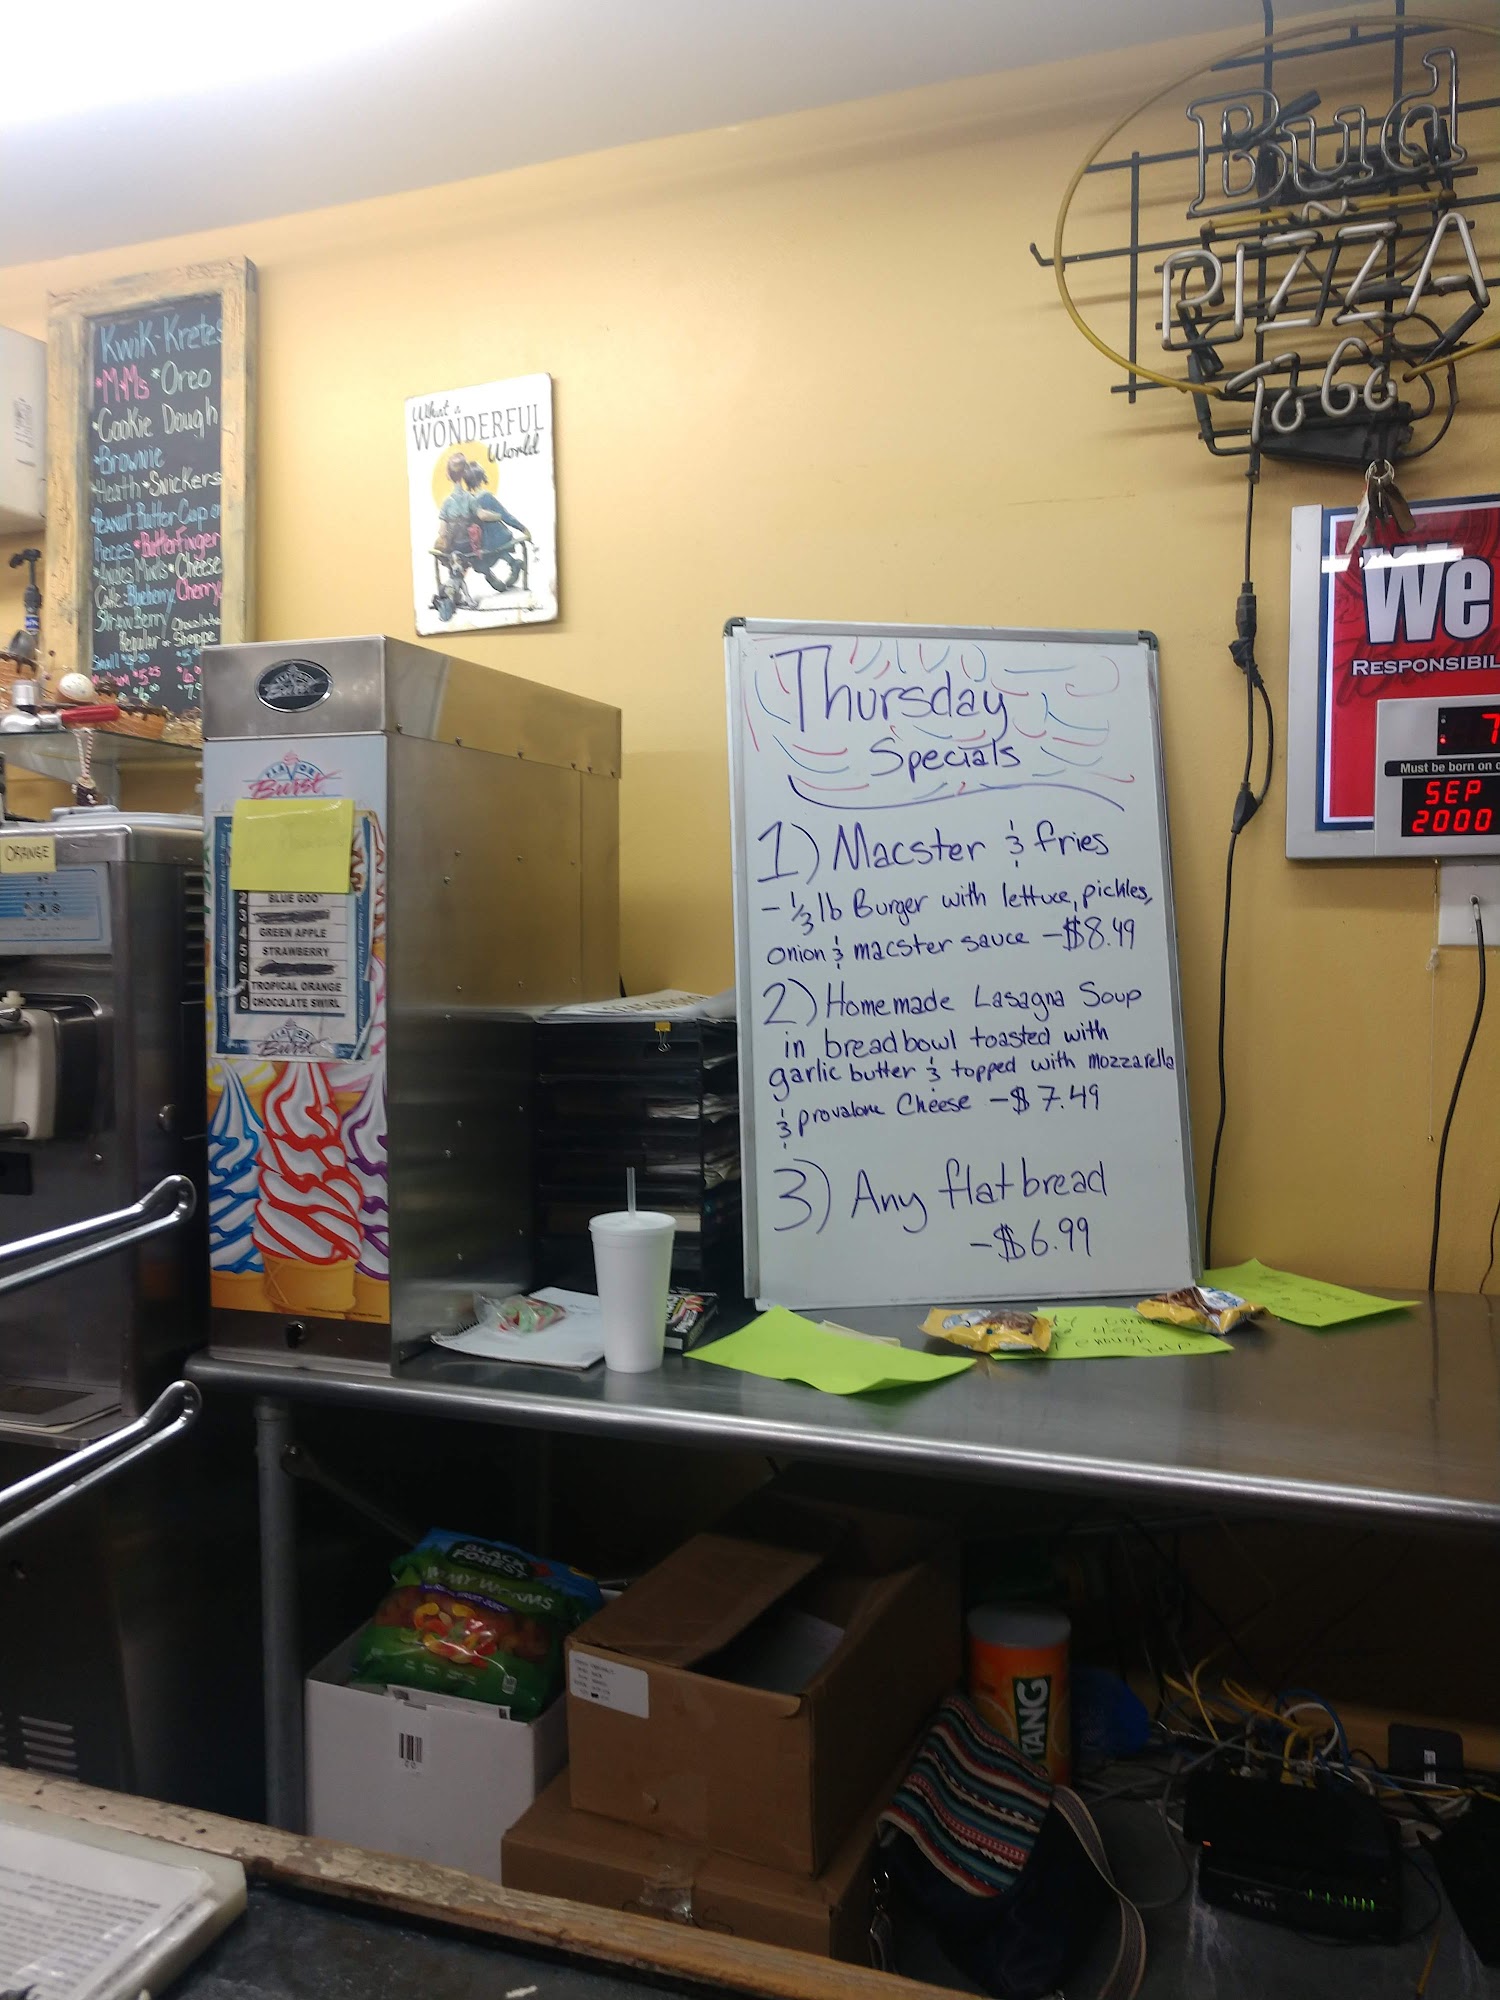 Bud
PIZZA
to Go
Kwik-Kretes
*M+Ms *Oreo
*Cookie Dough
*Brownie
*Heath *Snickers
*Peanut Butter Cup or
Pieces *ButterFinger
*Andes Mints *Cheese
Cake: Blueberry, Cherry
Strawberry Chocolate
Regular or Shoppe
Small
What a
WONDERFUL
World
We
RESPONSIBIL
7
Must be born on o
SEP
2000
Thursday
Specials
1) Macster & fries
- 1/3 lb Burger with lettuce, pickles,
onion & macster sauce - $8.49
2) Homemade Lasagna Soup
in breadbowl toasted with
garlic butter & topped with mozzarella
& provalone Cheese - $7.49
3) Any flatbread
- $6.99
FLAVOR
Burst
2 BLUE GOO
3
4 GREEN APPLE
5 STRAWBERRY
6
7 TROPICAL ORANGE
8 CHOCOLATE SWIRL
FLAVOR
Burst
ORANGE
enough
help
BLACK
FOREST
GUMMY WORMS
TANG
ARRIS